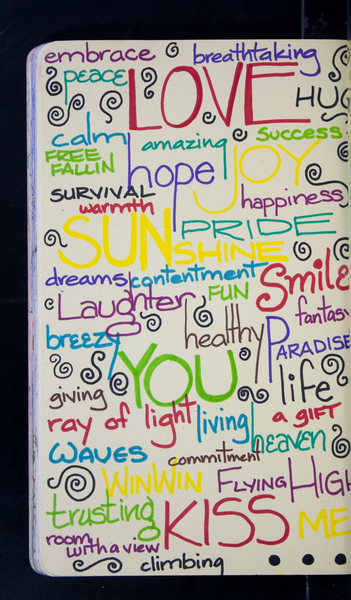 embrace breathtaking
peace LOVE
HUG
calm amazing success
FREE FALLIN hope JOY
SURVIVAL happiness
warmth
SUN PRIDE
SHINE
dreams contentment Smile
Laughter FUN
fantasy
breezy healthy PARADISE
YOU life
giving
ray of light living a GIFT
heaven
WAVES commitment
WINWIN FLYING HIGH
trusting KISS ME
room with a view
climbing